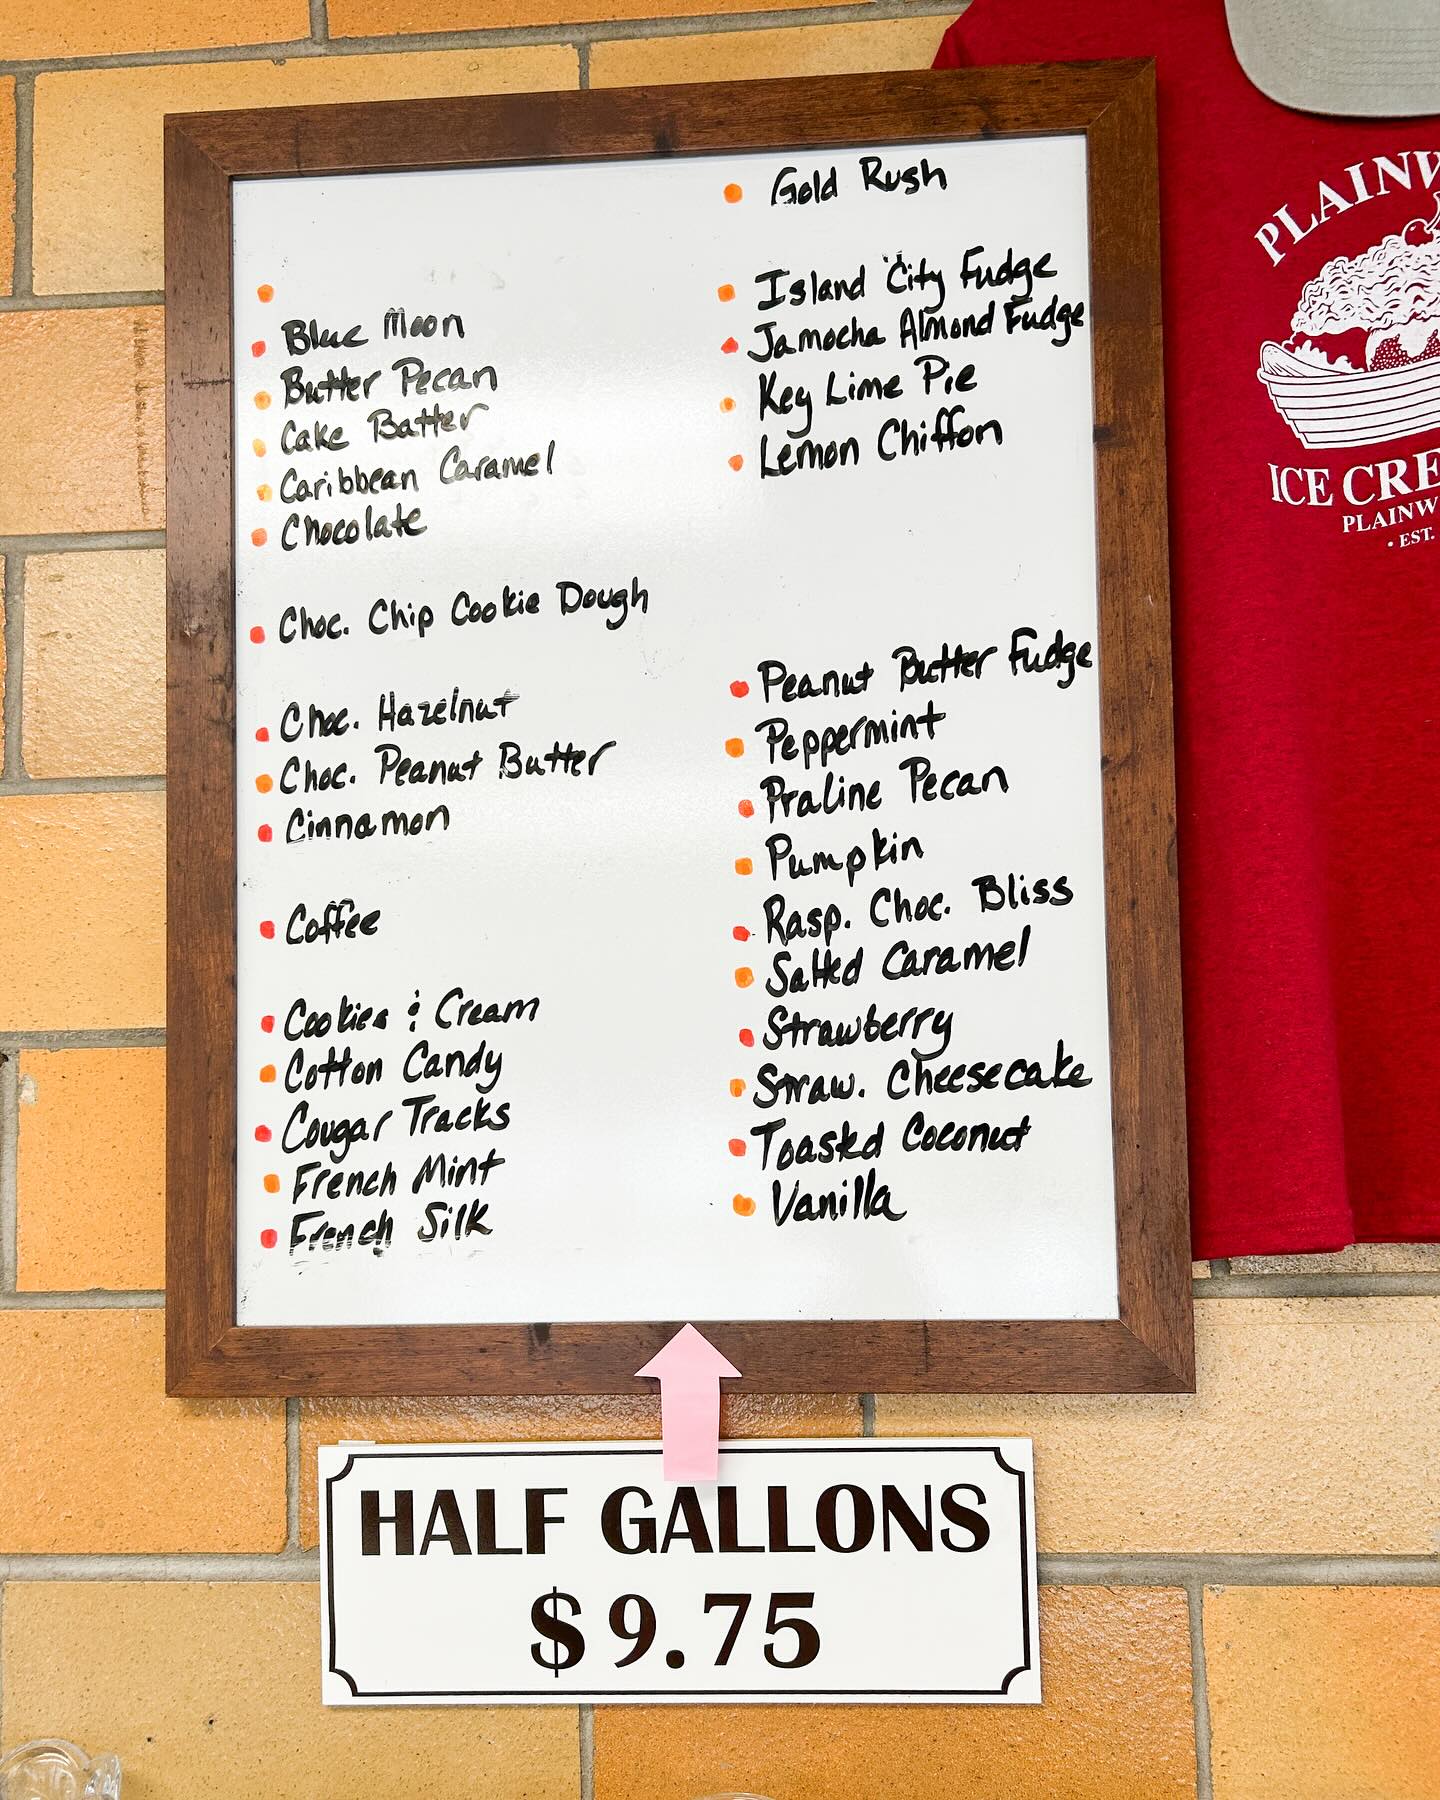 Blue Moon
Butter Pecan
Cake Batter
Caribbean Caramel
Chocolate
Choc. Chip Cookie Dough
Choc. Hazelnut
Choc. Peanut Butter
Cinnamon
Coffee
Cookies & Cream
Cotton Candy
Cougar Tracks
French Mint
French Silk
Gold Rush
Island City Fudge
Jamocha Almond Fudge
Key Lime Pie
Lemon Chiffon
Peanut Butter Fudge
Peppermint
Praline Pecan
Pumpkin
Rasp. Choc. Bliss
Salted Caramel
Strawberry
Straw. Cheesecake
Toasted Coconut
Vanilla
HALF GALLONS
$9.75
PLAINW
ICE CRE
PLAINW
• EST.